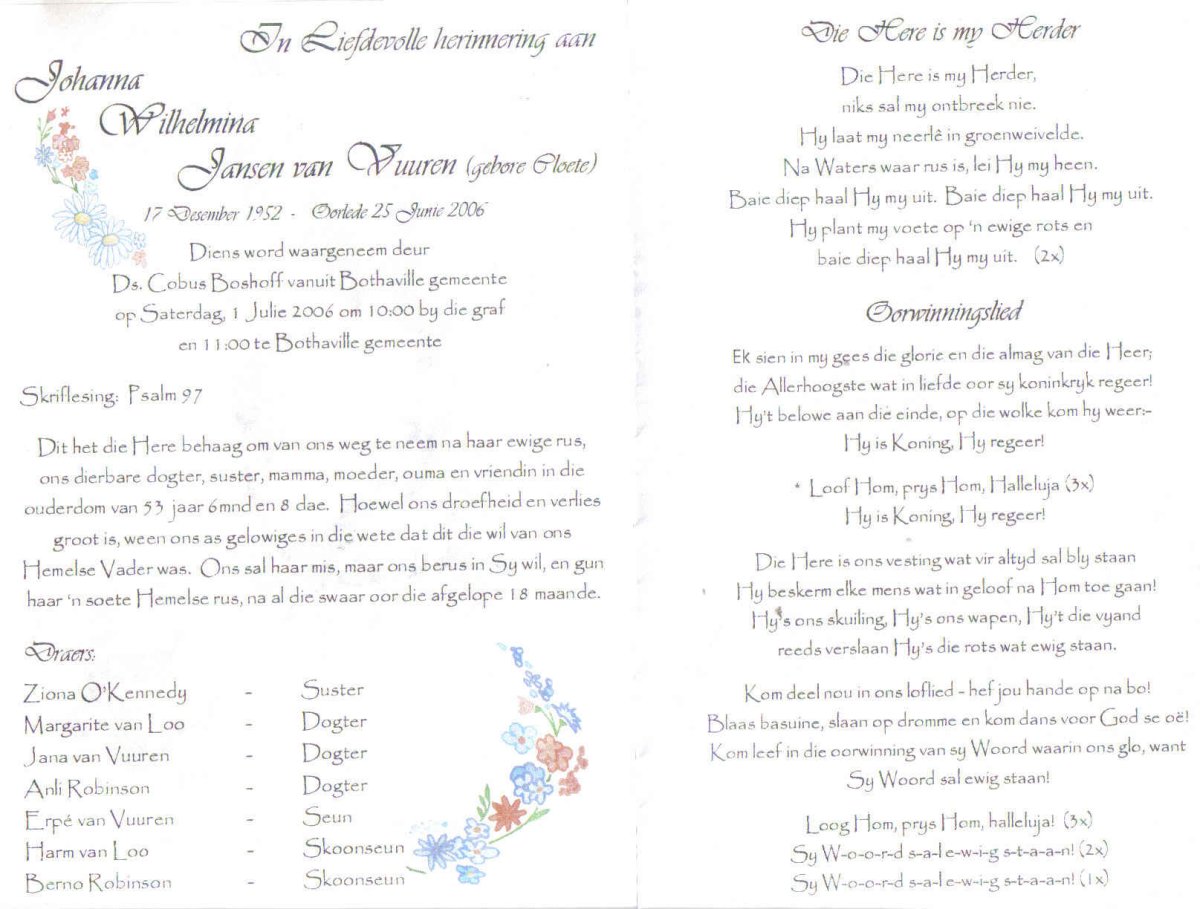 In Liefdevolle herinnering aan
Johanna
Wilhelmina
Jansen van Vuuren (gebore Cloete)
17 Desember 1952 - Oorlede 25 Junie 2006
Diens word waargeneem deur
Ds. Cobus Boshoff vanuit Bothaville gemeente
op Saterdag, 1 Julie 2006 om 10:00 by die graf
en 11:00 te Bothaville gemeente
Skriflesing: Psalm 97
Dit het die Here behaag om van ons weg te neem na haar ewige rus,
ons dierbare dogter, suster, mamma, moeder, ouma en vriendin in die
ouderdom van 53 jaar 6mnd en 8 dae. Hoewel ons droefheid en verlies
groot is, ween ons as gelowiges in die wete dat dit die wil van ons
Hemelse Vader was. Ons sal haar mis, maar ons berus in Sy wil, en gun
haar 'n soete Hemelse rus, na al die swaar oor die afgelope 18 maande.
Draers:
Ziona O'Kennedy - Suster
Margarite van Loo - Dogter
Jana van Vuuren - Dogter
Anli Robinson - Dogter
Erpé van Vuuren - Seun
Harm van Loo - Skoonseun
Berno Robinson - Skoonseun
Die Here is my Herder
Die Here is my Herder,
niks sal my ontbreek nie.
Hy laat my neerlê in groenweivelde.
Na Waters waar rus is, lei Hy my heen.
Baie diep haal Hy my uit. Baie diep haal Hy my uit.
Hy plant my voete op 'n ewige rots en
baie diep haal Hy my uit. (2x)
Oorwinningslied
Ek sien in my gees die glorie en die almag van die Heer;
die Allerhoogste wat in liefde oor sy koninkryk regeer!
Hy't belowe aan die einde, op die wolke kom hy weer:-
Hy is Koning, Hy regeer!
* Loof Hom, prys Hom, Halleluja (3x)
Hy is Koning, Hy regeer!
Die Here is ons vesting wat vir altyd sal bly staan
Hy beskerm elke mens wat in geloof na Hom toe gaan!
Hy's ons skuiling, Hy's ons wapen, Hy't die vyand
reeds verslaan Hy's die rots wat ewig staan.
Kom deel nou in ons loflied - hef jou hande op na bo!
Blaas basuine, slaan op dromme en kom dans voor God se oë!
Kom leef in die oorwinning van sy Woord waarin ons glo, want
Sy Woord sal ewig staan!
Loog Hom, prys Hom, halleluja! (3x)
Sy W-o-o-r-d s-a-l e-w-i-g s-t-a-a-n! (2x)
Sy W-o-o-r-d s-a-l e-w-i-g s-t-a-a-n! (1x)